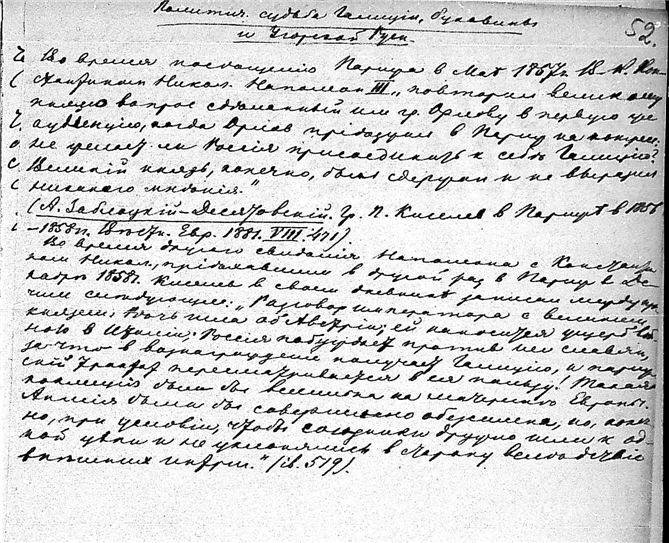 Политич. судьба Галиціи, Буковины
и Угорской Руси.
52.
Во время посѣщенія Парижа в Маѣ 1857г. В. К. Кон
стантином Никол. Наполеон III „повторил великому
князю вопрос сдѣланный им гр. Орлову в первую же
аудіенцію, когда Орлов пріѣзжал в Париж на конгресс:
не желает ли Россія присоединить к себѣ Галицію?
Великій князь, конечно, был сдержан и не выразил
никакого мнѣнія."
(А. Заблоцкій-Десятовскій. Гр. П. Киселев в Парижѣ в 1856
-1858гг. Вѣстн. Евр. 1881. VIII. 471).
Во время другого свиданія Наполеона с Констан
ном Никол., пріѣхавшим в другой раз в Париж в Де
кабрѣ 1858г. Киселев в своем дневникѣ записал между про
чим слѣдующее: „Разговор императора с великим
князем: Рѣчь шла об Австріи; ей наносится ущерб
ною в Италіи; Россія побуждает против нея славян,
за что в вознагражденіе получает Галицію, и париж
скій трактат пересматривается в ея пользу! Такая
коалиція была бы всесильна на материкѣ Европы.
Англія была бы совершенно обезсилена, но, конеч
но, при условіи, чтобы союзники дружно шли к од
ной цѣли и не уклонялись в сторону вслѣдствіе
интриг." (ib. 519).